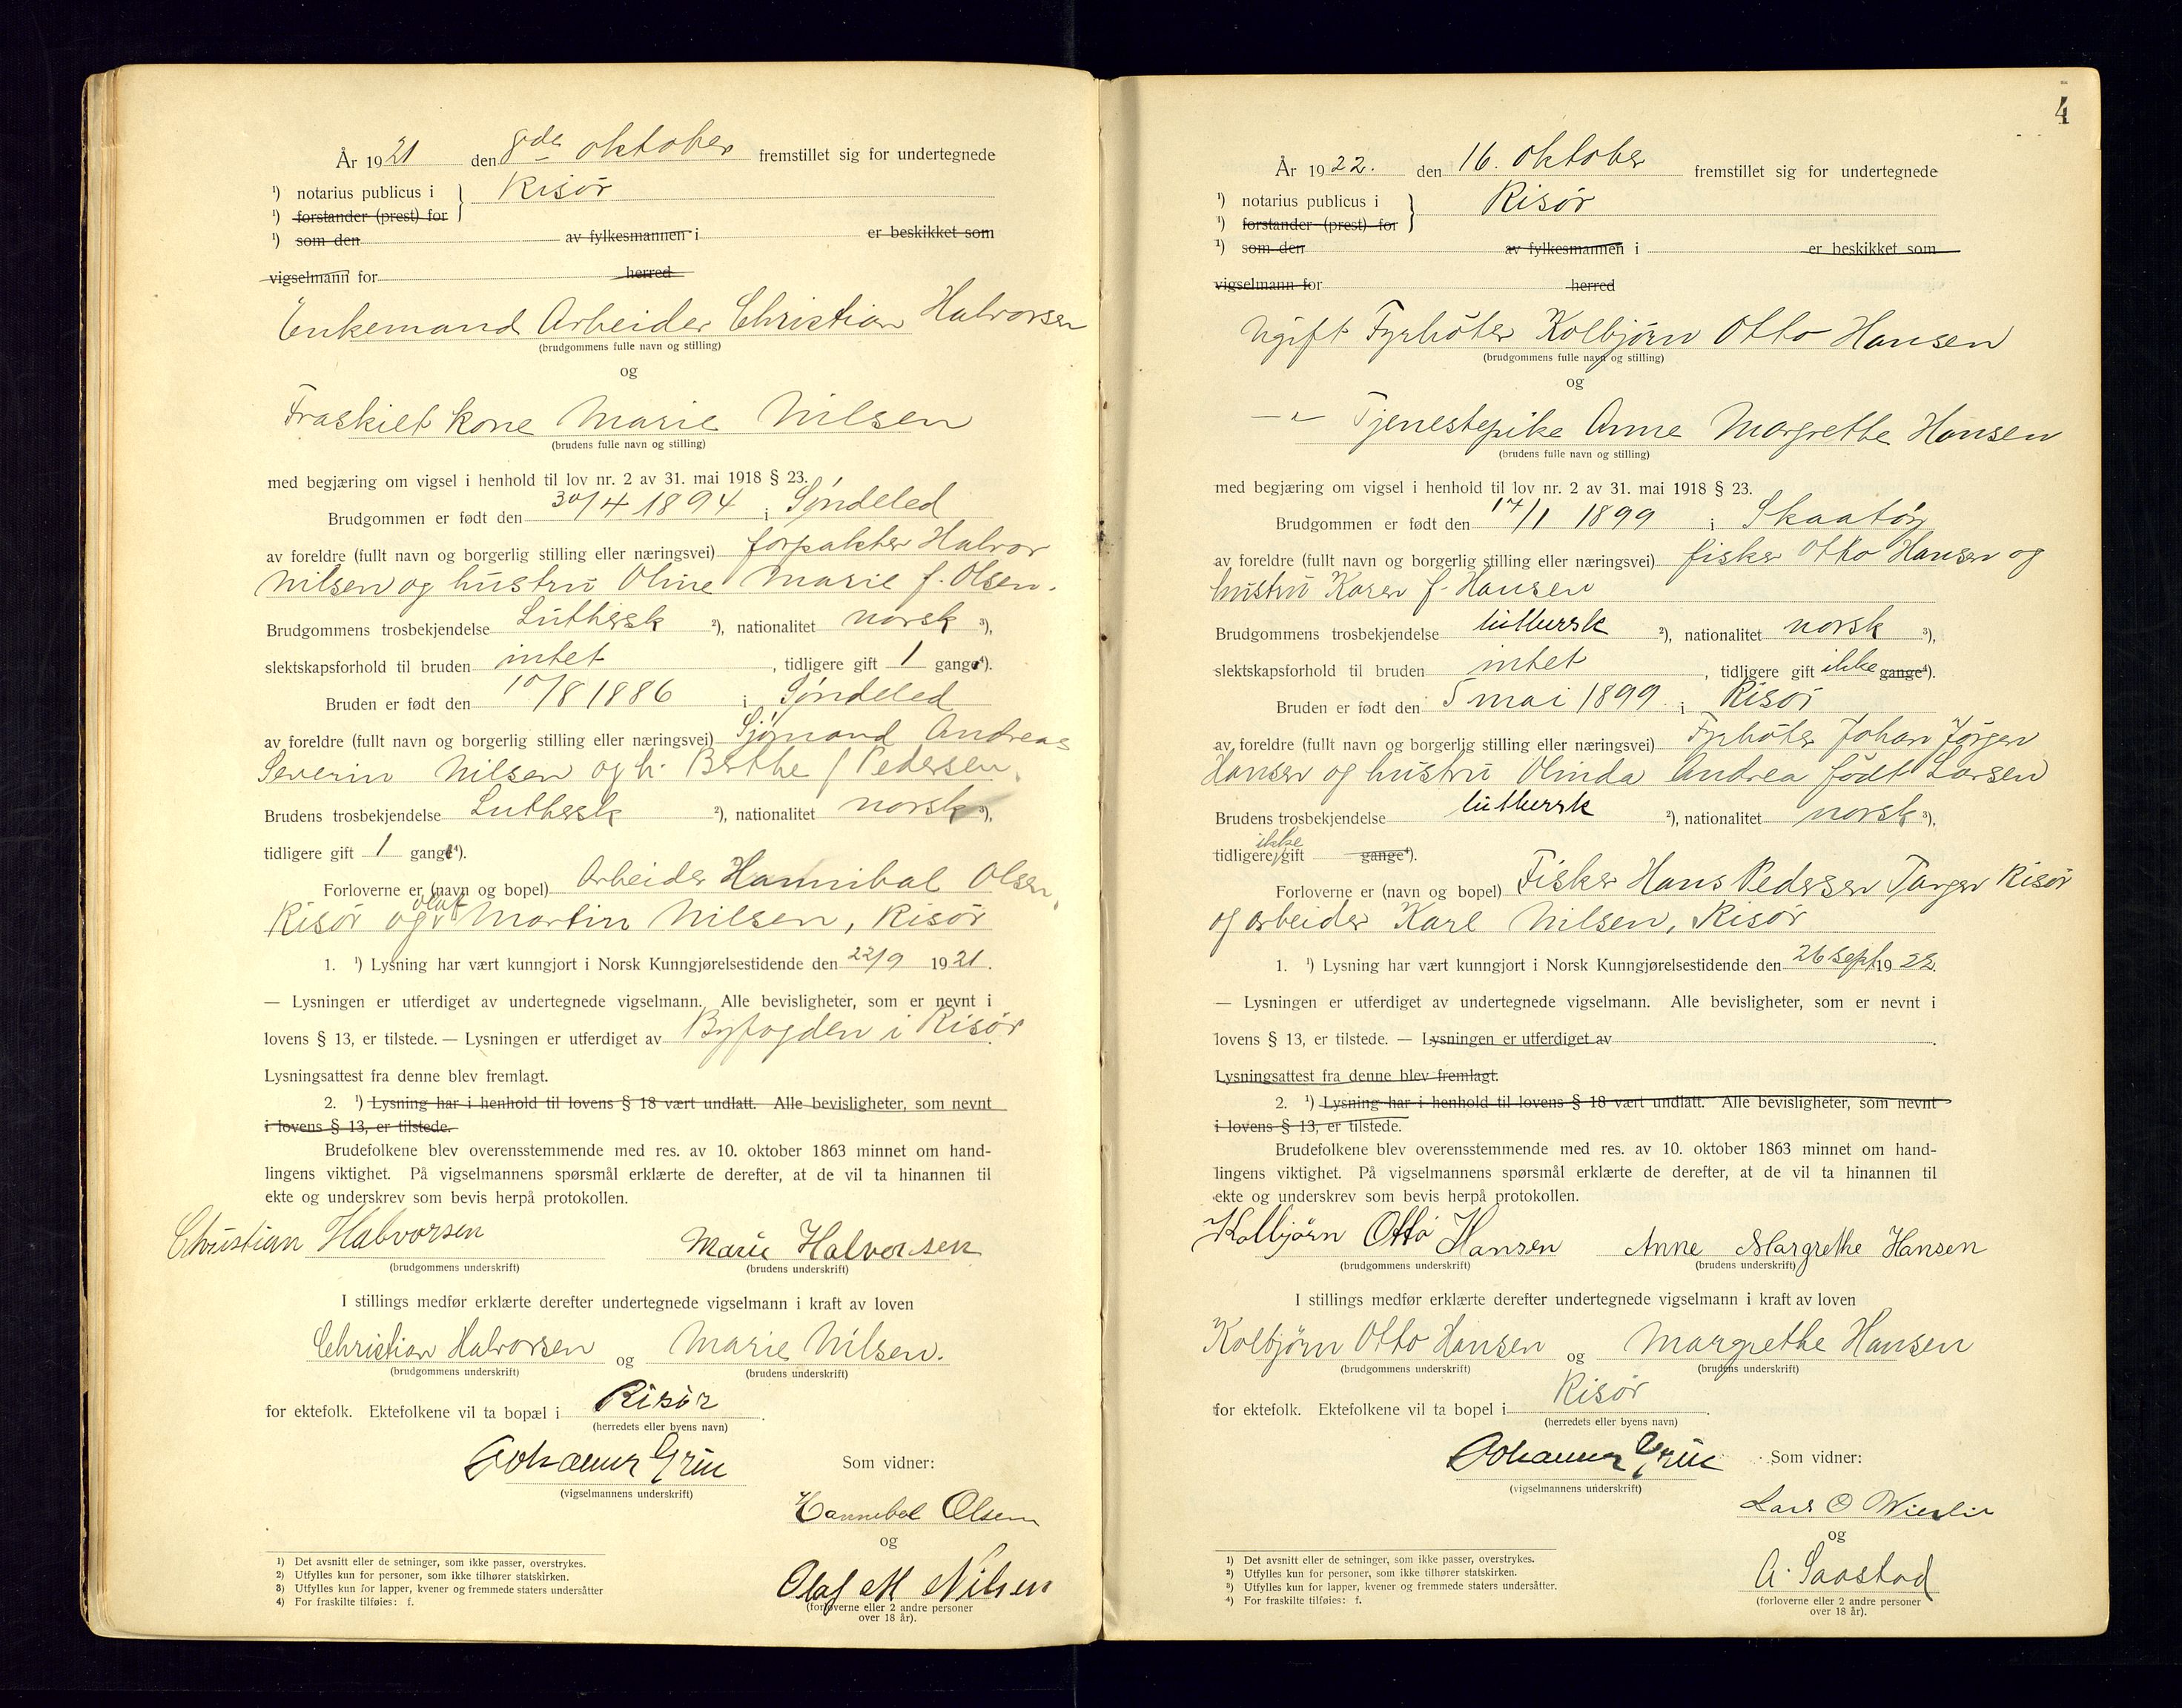 År 1921 den 8de oktober fremstillet sig for undertegnede
¹) notarius publicus i } Risør
¹) forstander (prest) for
¹) som den av fylkesmannen i er beskikket som
vigselmann for herred
Enkemand Arbeider Christian Halvorsen
(brudgommens fulle navn og stilling)
og
Fraskilt kone Marie Nilsen
(brudens fulle navn og stilling)
med begjæring om vigsel i henhold til lov nr. 2 av 31. mai 1918 § 23.
Brudgommen er født den 30/4 1894 i Søndeled
av foreldre (fullt navn og borgerlig stilling eller næringsvei) forpakter Halvor
Nilsen og hustru Oline Marie f. Olsen.
Brudgommens trosbekjendelse Luthersk ²), nationalitet norsk ³),
slektskapsforhold til bruden intet , tidligere gift 1 gang⁴).
Bruden er født den 10/8 1886 i Søndeled
av foreldre (fullt navn og borgerlig stilling eller næringsvei) Sjømand Andreas
Severin Nilsen og h. Berthe f Pedersen.
Brudens trosbekjendelse Luthersk ²), nationalitet norsk ³),
tidligere gift 1 gang⁴).
Forloverne er (navn og bopel) Arbeider Hannibal Olsen,
Risør og Olaf Martin Nilsen, Risør
1. ¹) Lysning har vært kunngjort i Norsk Kunngjørelsestidende den 22/9 1921.
— Lysningen er utferdiget av undertegnede vigselmann. Alle bevisligheter, som er nevnt i
lovens § 13, er tilstede. — Lysningen er utferdiget av Byfogden i Risør.
Lysningsattest fra denne blev fremlagt.
2. ¹) Lysning har i henhold til lovens § 18 vært undlatt. Alle bevisligheter, som nevnt
i lovens § 13, er tilstede.
Brudefolkene blev overensstemmende med res. av 10. oktober 1863 minnet om hand-
lingens viktighet. På vigselmannens spørsmål erklærte de derefter, at de vil ta hinannen til
ekte og underskrev som bevis herpå protokollen.
Christian Halvorsen Marie Halvorsen
(brudgommens underskrift) (brudens underskrift)
I stillings medfør erklærte derefter undertegnede vigselmann i kraft av loven
Christian Halvorsen og Marie Nilsen.
(brudgommens underskrift) (brudens underskrift)
for ektefolk. Ektefolkene vil ta bopæl i Risør.
(herredets eller byens navn)
Johannes Grüe Som vidner:
(vigselmannens underskrift)
Hannibal Olsen
og
Olaf M Nilsen
(forloverne eller 2 andre personer
over 18 år).
1) Det avsnitt eller de setninger, som ikke passer, overstrykes.
2) Utfylles kun for personer, som ikke tilhører statskirken.
3) Utfylles kun for lapper, kvener og fremmede staters undersåtter
4) For fraskilte tilføies: f.
4
År 1922. den 16. oktober fremstillet sig for undertegnede
¹) notarius publicus i } Risør
¹) forstander (prest) for
¹) som den av fylkesmannen i er beskikket som
vigselmann for herred
Ugift Fyrbøter Kolbjørn Otto Hansen
(brudgommens fulle navn og stilling)
og
—"— Tjenestepike Anne Margrethe Hansen
(brudens fulle navn og stilling)
med begjæring om vigsel i henhold til lov nr. 2 av 31. mai 1918 § 23.
Brudgommen er født den 17/1 1899 i Skaatøy
av foreldre (fullt navn og borgerlig stilling eller næringsvei) fisker Otto Hansen og
hustru Karen f. Hansen
Brudgommens trosbekjendelse luthersk ²), nationalitet norsk ³),
slektskapsforhold til bruden intet , tidligere gift ikke gange⁴).
Bruden er født den 5 mai 1899 i Risør
av foreldre (fullt navn og borgerlig stilling eller næringsvei) Fyrbøter Johan Jørgen
Hansen og hustru Olinda Andrea født Larsen
Brudens trosbekjendelse luthersk ²), nationalitet norsk ³),
tidligere ikke gift gange⁴).
Forloverne er (navn og bopel) Fisker Hans Pedersen Tangen Risør
og arbeider Karl Nilsen, Risør
1. ¹) Lysning har vært kunngjort i Norsk Kunngjørelsestidende den 26 sept 1922.
— Lysningen er utferdiget av undertegnede vigselmann. Alle bevisligheter, som er nevnt i
lovens § 13, er tilstede. — Lysningen er utferdiget av .
Lysningsattest fra denne blev fremlagt.
2. ¹) Lysning har i henhold til lovens § 18 vært undlatt. Alle bevisligheter, som nevnt
i lovens § 13, er tilstede.
Brudefolkene blev overensstemmende med res. av 10. oktober 1863 minnet om hand-
lingens viktighet. På vigselmannens spørsmål erklærte de derefter, at de vil ta hinannen til
ekte og underskrev som bevis herpå protokollen.
Kolbjørn Otto Hansen Anne Margrethe Hansen
(brudgommens underskrift) (brudens underskrift)
I stillings medfør erklærte derefter undertegnede vigselmann i kraft av loven
Kolbjørn Otto Hansen og Margrethe Hansen
(brudgommens underskrift) (brudens underskrift)
for ektefolk. Ektefolkene vil ta bopel i Risør.
(herredets eller byens navn)
Johannes Grüe Som vidner:
(vigselmannens underskrift)
Lars O
og
A. Saastad
(forloverne eller 2 andre personer
over 18 år).
1) Det avsnitt eller de setninger, som ikke passer, overstrykes.
2) Utfylles kun for personer, som ikke tilhører statskirken.
3) Utfylles kun for lapper, kvener og fremmede staters undersåtter.
4) For fraskilte tilføies: f.